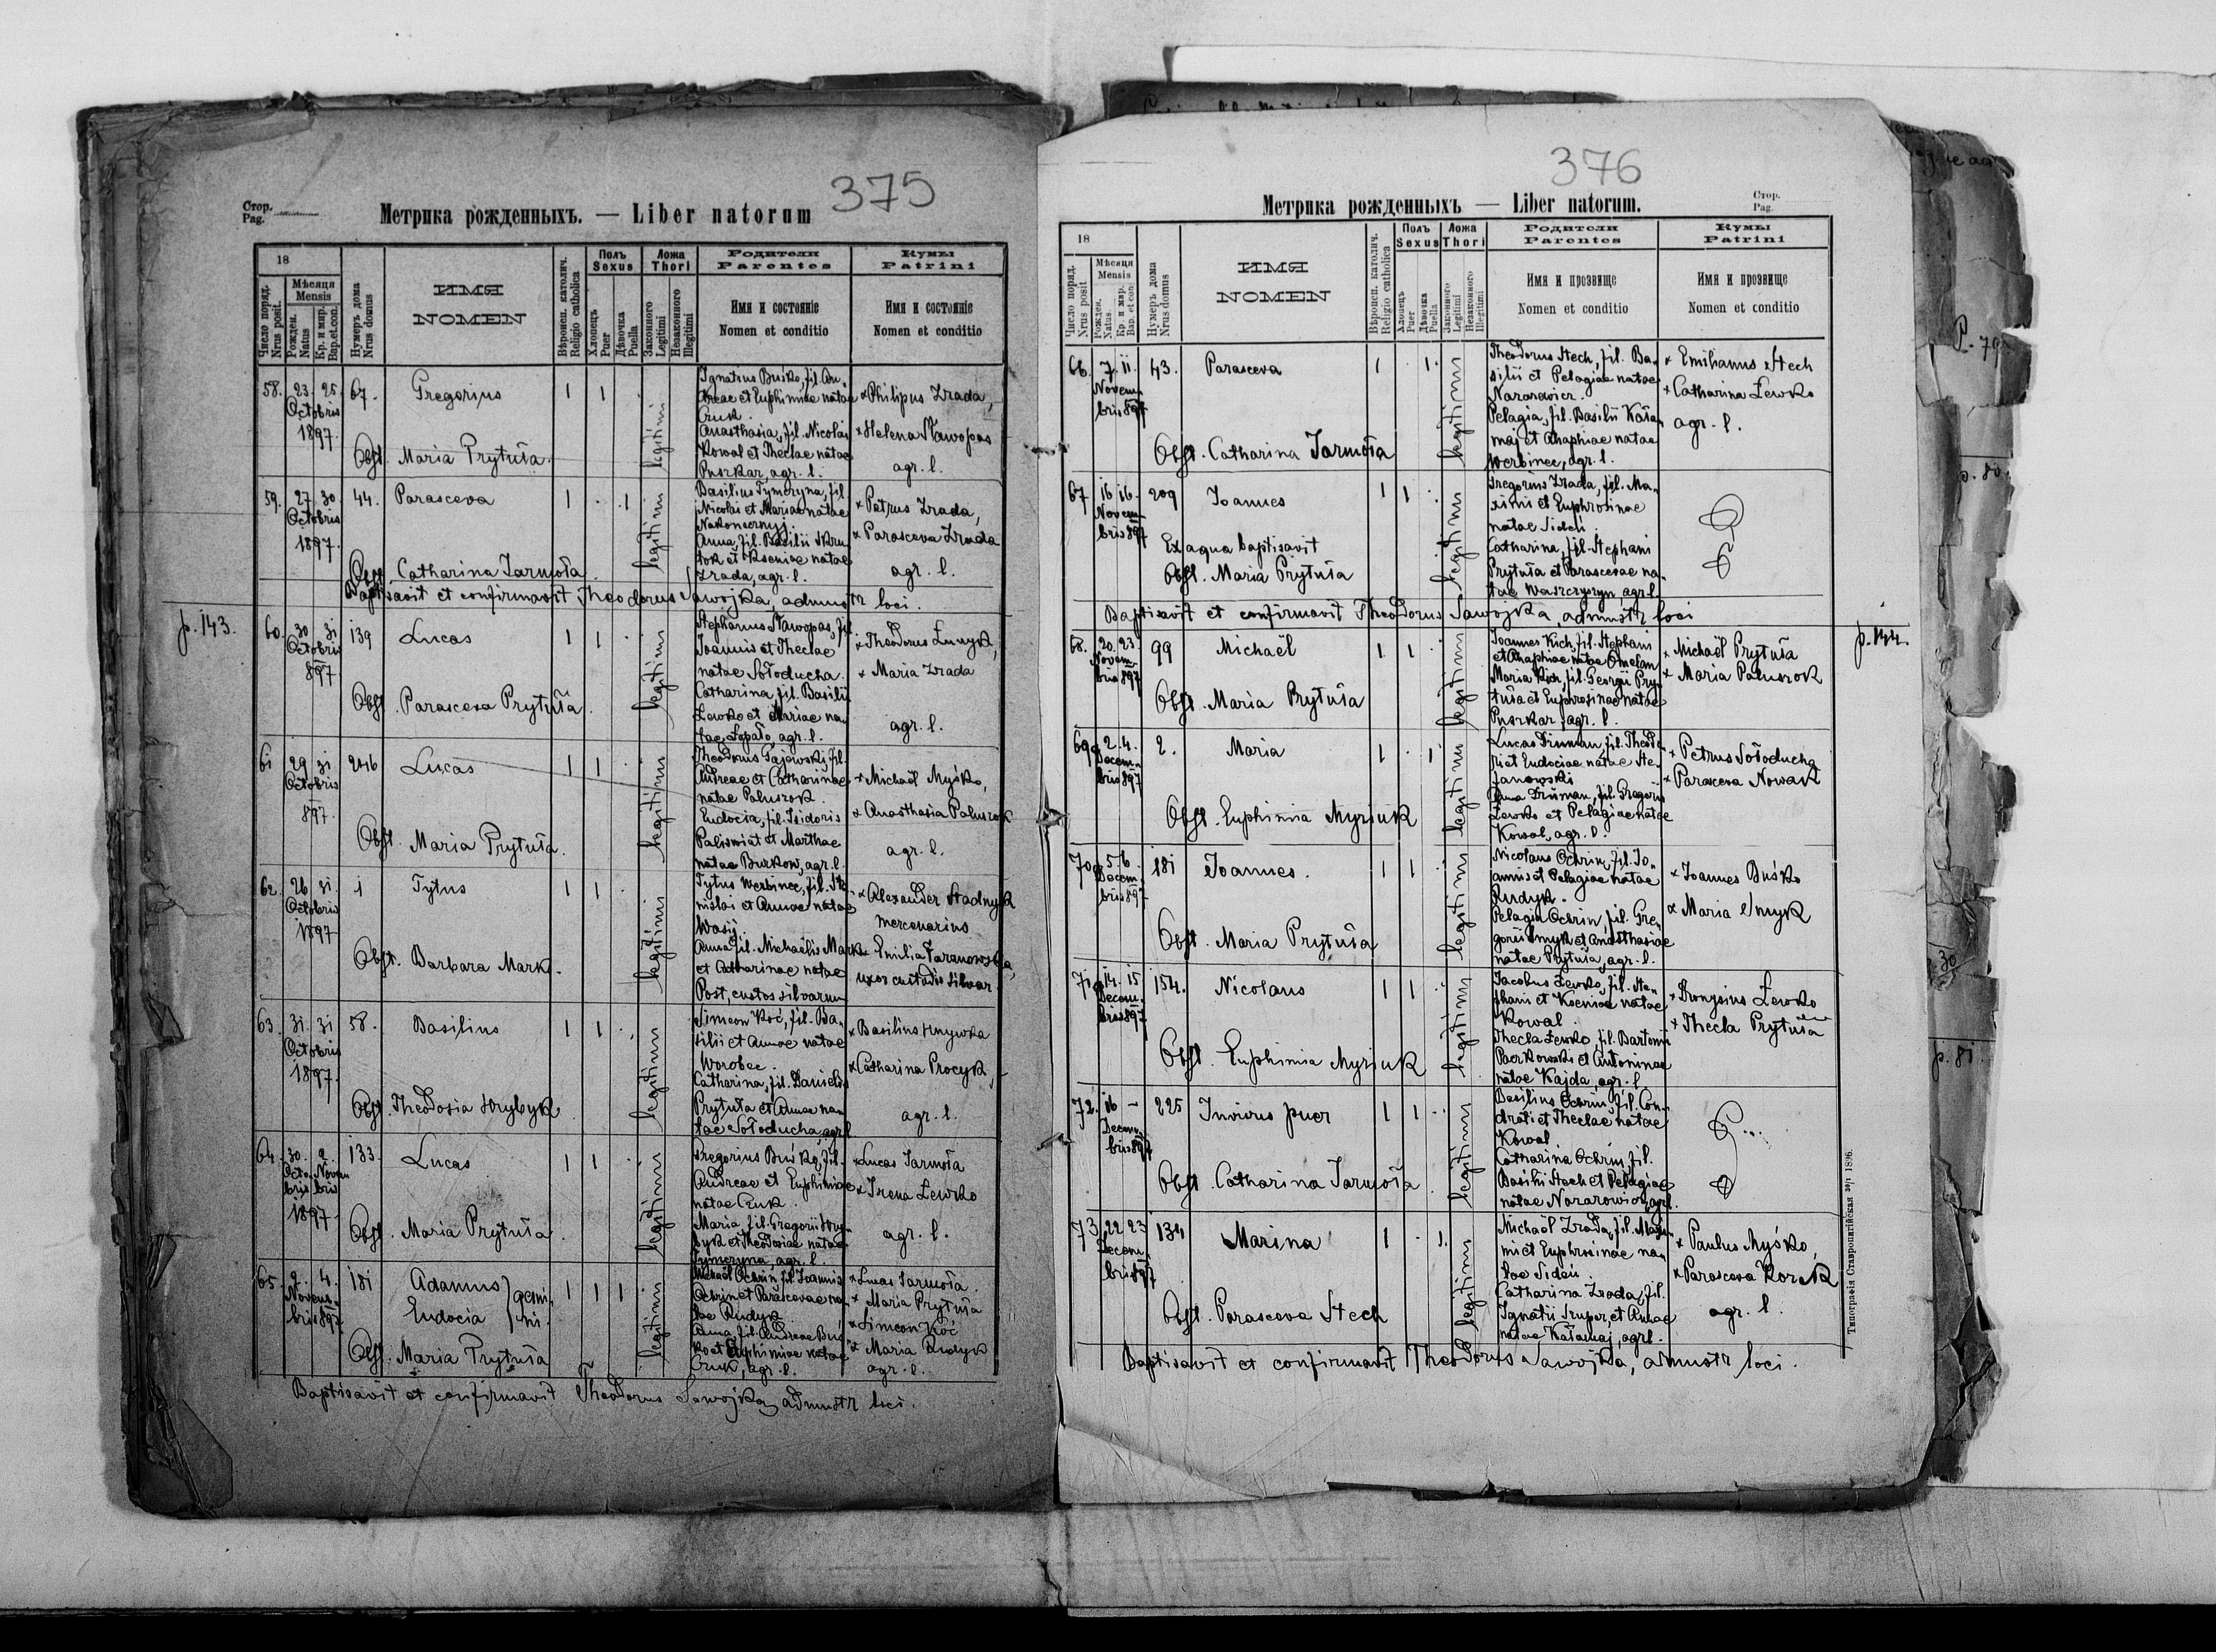 375
Стор.
Pag.
Метрика рожденныхъ. — Liber natorum
18
Число поряд.
Nrus posit.
Мѣсяця
Mensis
Рожден.
Natus
Кр. и мир.
Bap. et con.
Нумеръ дома
Nrus domus
ИМЯ
NOMEN
Вѣроисп. католич.
Religio catholica
Полъ
Sexus
Хлопець
Puer
Дѣвочка
Puella
Ложа
Thori
Законного
Legitimi
Незаконного
Illegitimi
Родители
Parentes
Имя и состоянiе
Nomen et conditio
Кумы
Patrini
Имя и состоянiе
Nomen et conditio
58. 23. 25. 67. Gregorius 1 1 .
Octobris
1897.
Obst. Maria Prytuła
legitimi
Ignatius Buśko, fil. An-
dreae et Euphimiae natae
Cruk.
Anasthasia, fil. Nicolai
Kowal et Theclae natae
Puszkar, agr. l.
× Philipus Zrada,
× Helena Nawopas
agr. l.
59. 27. 30. 44. Parasceva 1 . 1
Octobris
1897.
Obst. Catharina Jarmoła
legitimi
Basilius Tymczyna, fil.
Nicolai et Mariae natae
Nakonecznyj.
Anna, fil. Basilii
et Kseniae natae
Zrada, agr. l.
× Petrus Zrada,
× Parasceva Zrada
agr. l.
Baptisavit et confirmavit Theodorus Sawojka, admnstr loci.
p. 143.
60. 30 31 139 Lucas 1 1 .
Octobris
897
Obst. Parasceva Prytuła.
legitimi
Stephanus Nawopas, fil.
Joannis et Theclae
natae Sołoducha.
Catharina, fil. Basilii
Lewko et Mariae na-
tae Łopato, agr. l.
× Theodorus Łunyk,
× Maria Zrada
agr. l.
61 29 31 246 Lucas 1 1
Octobris
897.
Obst. Maria Prytuła.
legitimi
Theodorus Gajewski, fil.
Andreae et Catharinae
natae Paluszok.
Eudocia, fil. Isidoris
et Marthae
natae Burkow, agr. l.
× Michaël Myśko,
× Anasthasia Paluszok
agr. l.
62. 26 31. 1 Tytus 1 1
Octobris
1897
Obst. Barbara Mark.
legitimi
Tytus Werbinec, fil. Sta-
nislai et Annae natae
Wasij.
Anna, fil. Michaelis Mark
et Catharinae natae
Post, custos silvarum
× Alexander Stadnyk
mercenarius
× Emilia Taranowska,
uxor custodis silvar.
63. 31. 31 58. Basilius 1 1
Octobris
1897.
Obst. Theodosia Hrybyk
legitimi
Simeon Koć, fil. Ba-
silii et Annae natae
Worobec.
Catharina, fil. Danielis
Prytuła et Annae na-
tae Sołoducha, agr. l
× Basilius Hnywka
× Catharina Procyk,
agr. l.
64. 30. 2. 133. Lucas 1 1
Octo- Novem
bris bris
1897
Obst. Maria Prytuła.
legitimi
Gregorius Buśko, fil.
Andreae et Euphimiae
natae Cruk.
Maria, fil. Gregorii Hry-
byk et Theodosiae natae
Tymczyna, agr. l.
× Lucas Jarmoła
× Irena Lewko
agr. l.
65. 2. 4. 181 Adamus } gemi- 1 1 1
Novem- Eudocia } ni.
bris897.
Obst. Maria Prytuła
legitimi
Michaël Ochrin, fil. Joannis
Ochrin et Parascevae na-
tae Rudyk.
Anna, fil. Andreae Buś-
ko et Euphimiae natae
Cruk, agr. l.
× Lucas Jarmoła.
× Maria Prytuła
× Simeon Koć
× Maria Rudyk
agr. l.
Baptisavit et confirmavit Theodorus Sawojka, admnstr loci.
376
Метрика рожденныхъ — Liber natorum.
Стор.
Pag.
18
Число поряд.
Nrus posit
Мѣсяця
Mensis
Рожден.
Natus.
Кр. и мир.
Bap. et con
Нумеръ дома
Nrus domus
ИМЯ
NOMEN
Вѣроисп. католич.
Religio catholica
Полъ
Sexus
Хлопець
Puer
Дѣвочка
Puella
Ложа
Thori
Законного
Legitimi
Незаконного
Illegitimi
Родители
Parentes
Имя и прозвище
Nomen et conditio
Кумы
Patrini
Имя и прозвище
Nomen et conditio
66. 7. 11. 43. Parasceva 1 . 1.
Novem-
bris897
Obst. Catharina Jarmoła
legitimi
Theodorus Stech, fil. Ba-
silii et Pelagiae natae
Nazarewicz.
Pelagia, fil. Basilii Kała-
maj et Ahaphiae natae
Werbinec, agr. l.
× Emilianus Stech
× Catharina Lewko
agr. l.
67 16 16. 209 Joannes 1 1 .
Novem-
bris897
Ex aqua baptisavit
Obst. Maria Prytuła
legitimi
Gregorius Zrada, fil. Ma-
ximi et Euphrosinae
natae Sideń.
Catharina, fil. Stephani
Prytuła et Parascevae na-
tae Waszczyszyn, agr. l.
Baptisavit et confirmavit Theodorus Sawojka, admnstr loci
p. 144.
68. 20. 23. 99 Michaël 1 1
Novem-
bris897
Obst. Maria Prytuła
legitimi
Joannes Kich, fil. Stephani
et Ahaphiae natae Omelan
Maria Kich, fil. Georgii Pry-
tuła et Euphrosinae natae
Puszkar, agr. l.
× Michaël Prytuła
× Maria Paluszok
69 2. 4. 2. Maria 1 . 1
Decem-
bris897
Obst. Euphimia Myrjuk
legitimi
Lucas Duman, fil. Theodo-
ri et Eudociae natae Ste-
fanowski
Anna Duman, fil. Gregorii
Lewko et Pelagiae natae
Kowal, agr. l.
× Petrus Sołoducha
× Parasceva Nowak
70 5. 6. 181 Joannes. 1 1
Decem-
bris897
Obst. Maria Prytuła
legitimi
Nicolaus Ochrin, fil. Jo-
annis et Pelagiae natae
Rudyk.
Pelagia Ochrin, fil. Gre-
gorii Smyk et Anasthasiae
natae Prytuła, agr. l.
× Joannes Buśko
× Maria Smyk
71 14. 15 154. Nicolaus 1 1
Decem-
bris897
Obst. Euphimia Myrjuk
legitimi
Jacobus Lewko, fil. Ste-
phani et Kseniae natae
Kowal.
Thecla Lewko, fil. Bartomi
Paczkowski et Antoninae
natae Kajda, agr. l
× Dionysius Lewko
× Thecla Prytuła
72. 16 – 225 Invivus puer 1 1
Decem-
bris897
Obst. Catharina Jarmoła
legitimi
Basilius Ochrin, fil. Con-
drati et Theclae natae
Kowal.
Catharina Ochrin, fil.
Basilii Stech et Pelagiae
natae Nazarowicz, agr. l.
73. 22 23 134 Marina 1 . 1.
Decem-
bris897
Obst. Parasceva Stech
legitimi
Michaël Zrada, fil. Maxi-
mi et Euphrosinae na-
tae Sideń.
Catharina Zrada, fil.
Ignatii Snuper, et Annae
natae Kałamaj, agr. l.
× Paulus Myśko,
× Parasceva Korek
agr. l.
Baptisavit et confirmavit Theodorus Sawojka, admnstr loci.
Типографiя Ставропигiйская 1896.
P. 79.
p. 80.
p. 81.